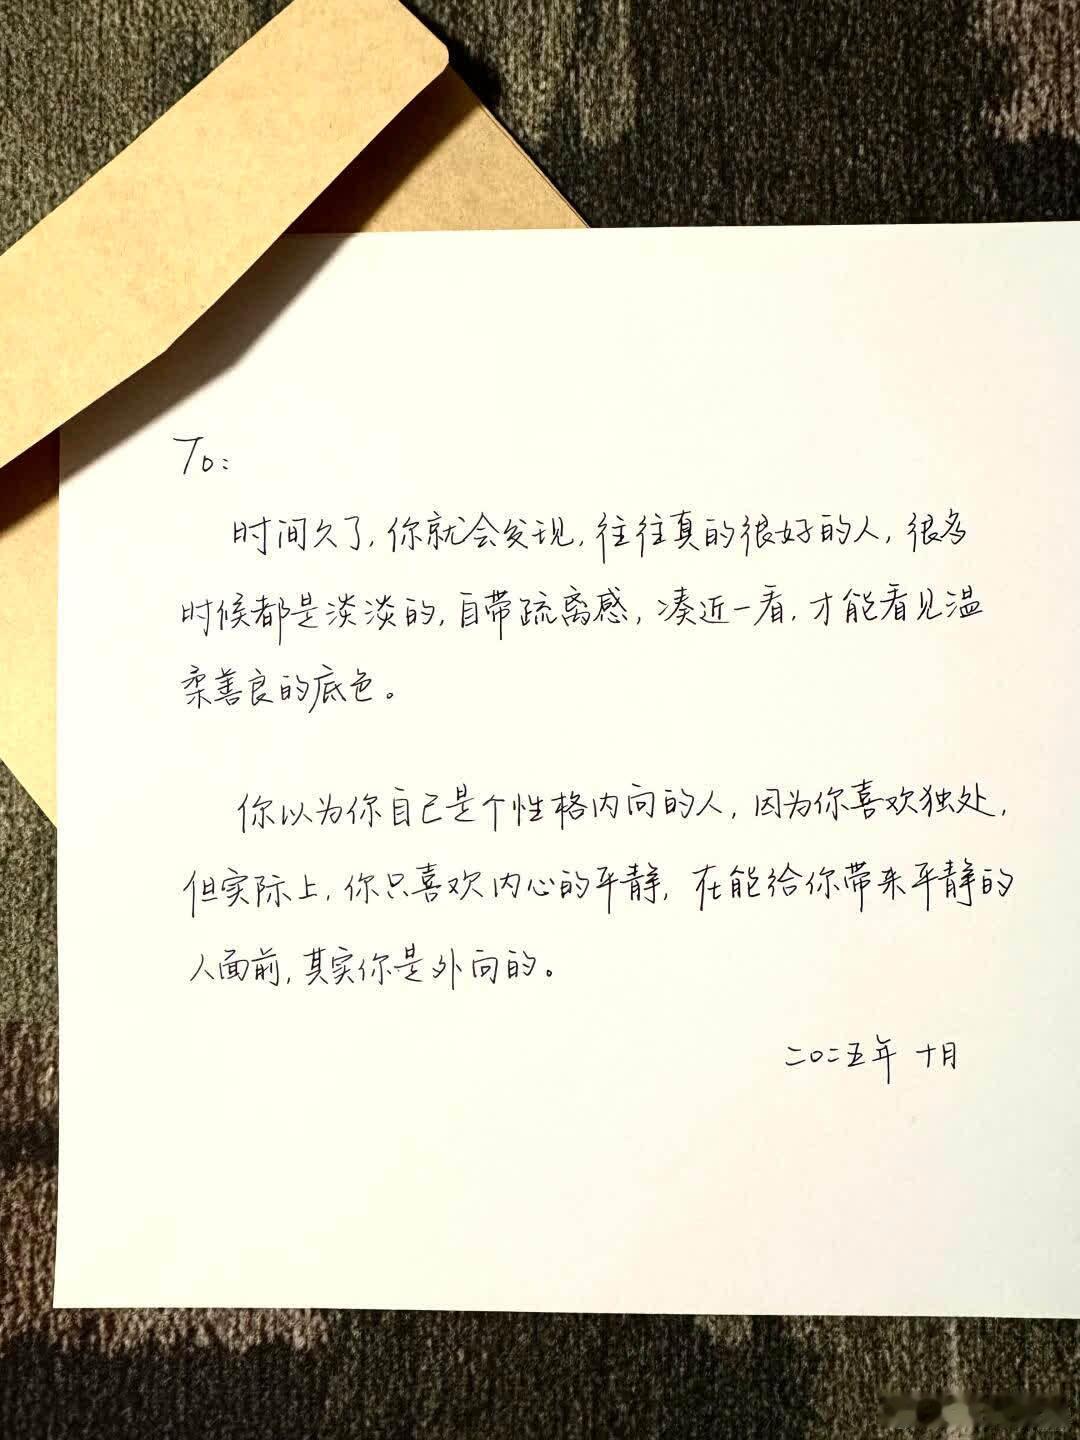 To:
时间久了,你就会发现,往往真的很好的人,很多
时候都是淡淡的,自带疏离感,凑近一看,才能看见温
柔善良的底色。
你以为你自己是个性格内向的人,因为你喜欢独处,
但实际上,你只喜欢内心的平静,在能给你带来平静的
人面前,其实你是外向的。
二〇二五年 十月